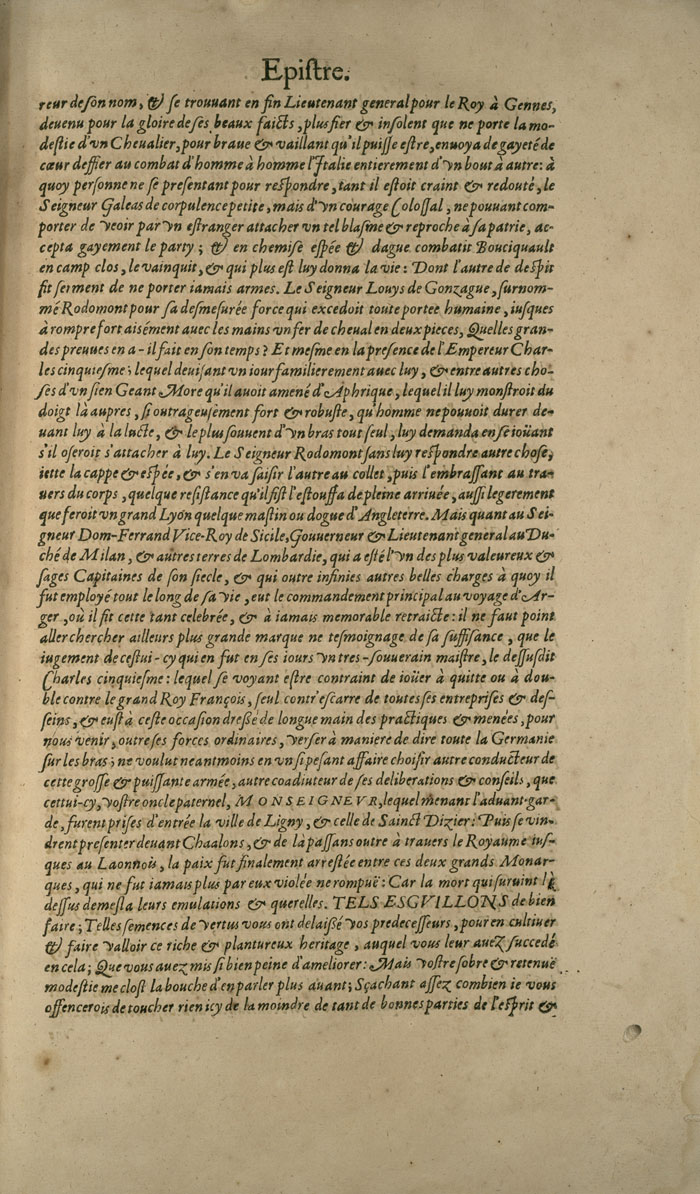 Epistre.
reur de son nom, & se trouuant en fin Lieutenant general pour le Roy à Gennes,
deuenu pour la gloire de ses beaux faicts, plus fier & insolent que ne porte la mo-
destie d'vn Cheualier, pour braue & vaillant qu'il puisse estre, enuoya de gayeté de
cœur deffier au combat d'homme à homme l'Italie entierement d'vn bout à autre: à
quoy personne ne se presentant pour respondre, tant il estoit craint & redouté, le
Seigneur Galeas de corpulence petite, mais d'vn courage Colossal, ne pouuant com-
porter de veoir par vn estranger attacher vn tel blasme & reproche à sa patrie, ac-
cepta gayement le party; & en chemise espée & dague combatit Bouciquault
en camp clos, le vainquit, & qui plus est luy donna la vie: Dont l'autre de despit
fit serment de ne porter iamais armes. Le Seigneur Louys de Gonzague, surnom-
mé Rodomont pour sa desmesurée force qui excedoit toute portee humaine, iusques
à rompre fort aisément auec les mains vn fer de cheual en deux pieces, Quelles gran-
des preuues en a-il fait en son temps? Et mesme en la presence de l'Empereur Char-
les cinquiesme; lequel deuisant vn iour familierement auec luy, & entre autres cho-
ses d'vn sien Geant More qu'il auoit amené d'Aphrique, lequel il luy monstroit du
doigt là aupres, si outrageusement fort & robuste, qu'homme ne pouuoit durer de-
uant luy à la lucte, & le plus souuent d'vn bras tout seul, luy demanda en se ioüant
s'il oseroit s'attacher à luy. Le Seigneur Rodomont sans luy respondre autre chose,
iette la cappe & espée, & s'en va saisir l'autre au collet, puis l'embrassant au tra-
uers du corps, quelque resistance qu'il fist l'estouffa de pleine arriuée, aussi legerement
que feroit vn grand Lyon quelque mastin ou dogue d'Angleterre. Mais quant au Sei-
gneur Dom-Ferrand Vice-Roy de Sicile, Gouuerneur & Lieutenant general au Du-
ché de Milan, & autres terres de Lombardie, qui a esté l'vn des plus valeureux &
sages Capitaines de son siecle, & qui outre infinies autres belles charges à quoy il
fut employé tout le long de sa vie, eut le commandement principal au voyage d'Ar-
ger, où il fit cette tant celebrée, & à iamais memorable retraicte: il ne faut point
aller chercher ailleurs plus grande marque ne tesmoignage de sa suffisance, que le
iugement de cestui-cy qui en fut en ses iours vn tres-souuerain maistre, le dessusdit
Charles cinquiesme: lequel se voyant estre contraint de ioüer à quitte ou à dou-
ble contre le grand Roy François, seul contr'escarre de toutes ses entreprises & des-
seins, & eust à ceste occasion dressé de longue main des practiques & menées, pour
nous venir, outre ses forces ordinaires, verser à maniere de dire toute la Germanie
sur les bras; ne voulut neantmoins en vn si pesant affaire choisir autre conducteur de
cette grosse & puissante armée, autre coadiuteur de ses deliberations & conseils, que
cettui-cy, vostre oncle paternel, MONSEIGNEVR, lequel menant l'aduant-gar-
de, furent prises d'entrée la ville de Ligny, & celle de Sainct Dizier: Puis se vin-
drent presenter deuant Chaalons, & de là passans outre à trauers le Royaume ius-
ques au Laonnois, la paix fut finalement arrestée entre ces deux grands Monar-
ques, qui ne fut iamais plus par eux violée ne rompuë: Car la mort qui suruint là
dessus demesla leurs emulations & querelles. TELS ESGVILLONS de bien
faire; Telles semences de vertus vous ont delaißé vos predecesseurs, pour en cultiuer
& faire valloir ce riche & plantureux heritage, auquel vous leur auez succedé
en cela; Que vous auez mis si bien peine d'ameliorer: Mais vostre sobre & retenuë
modestie me clost la bouche d'en parler plus auant; Sçachant assez combien ie vous
offencerois de toucher rien icy de la moindre de tant de bonnes parties de l'esprit &